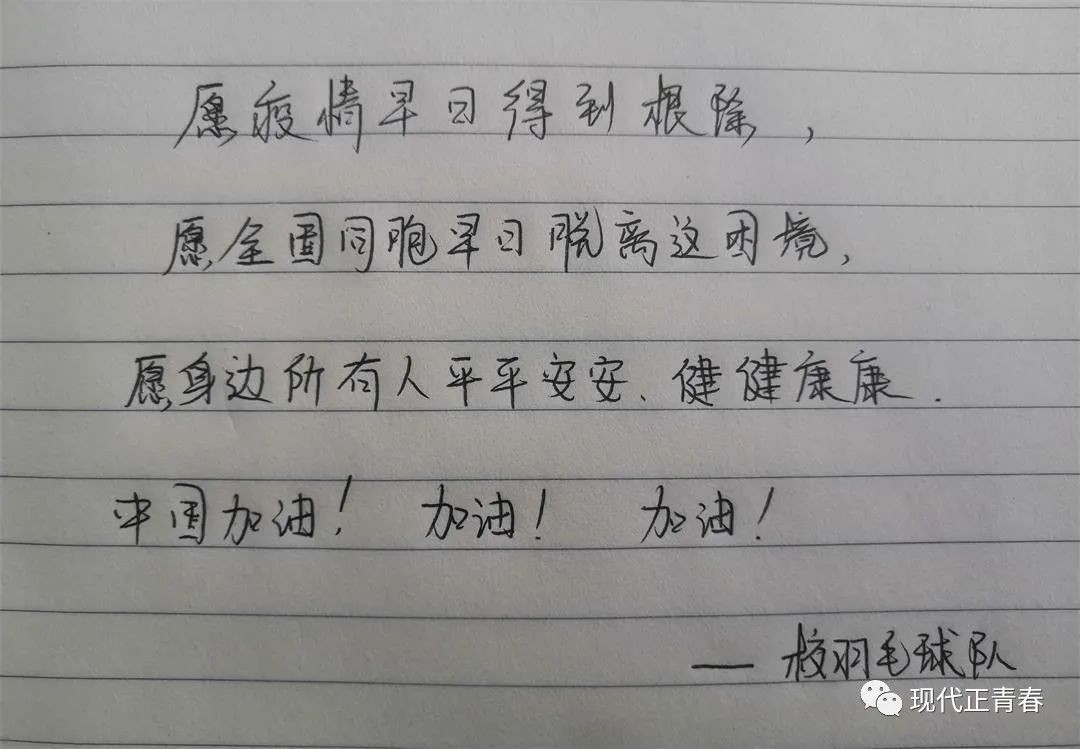 愿疫情早日得到根除，
愿全国同胞早日脱离这困境，
愿身边所有人平平安安、健健康康.
中国加油！ 加油！ 加油！
— 校羽毛球队
现代正青春